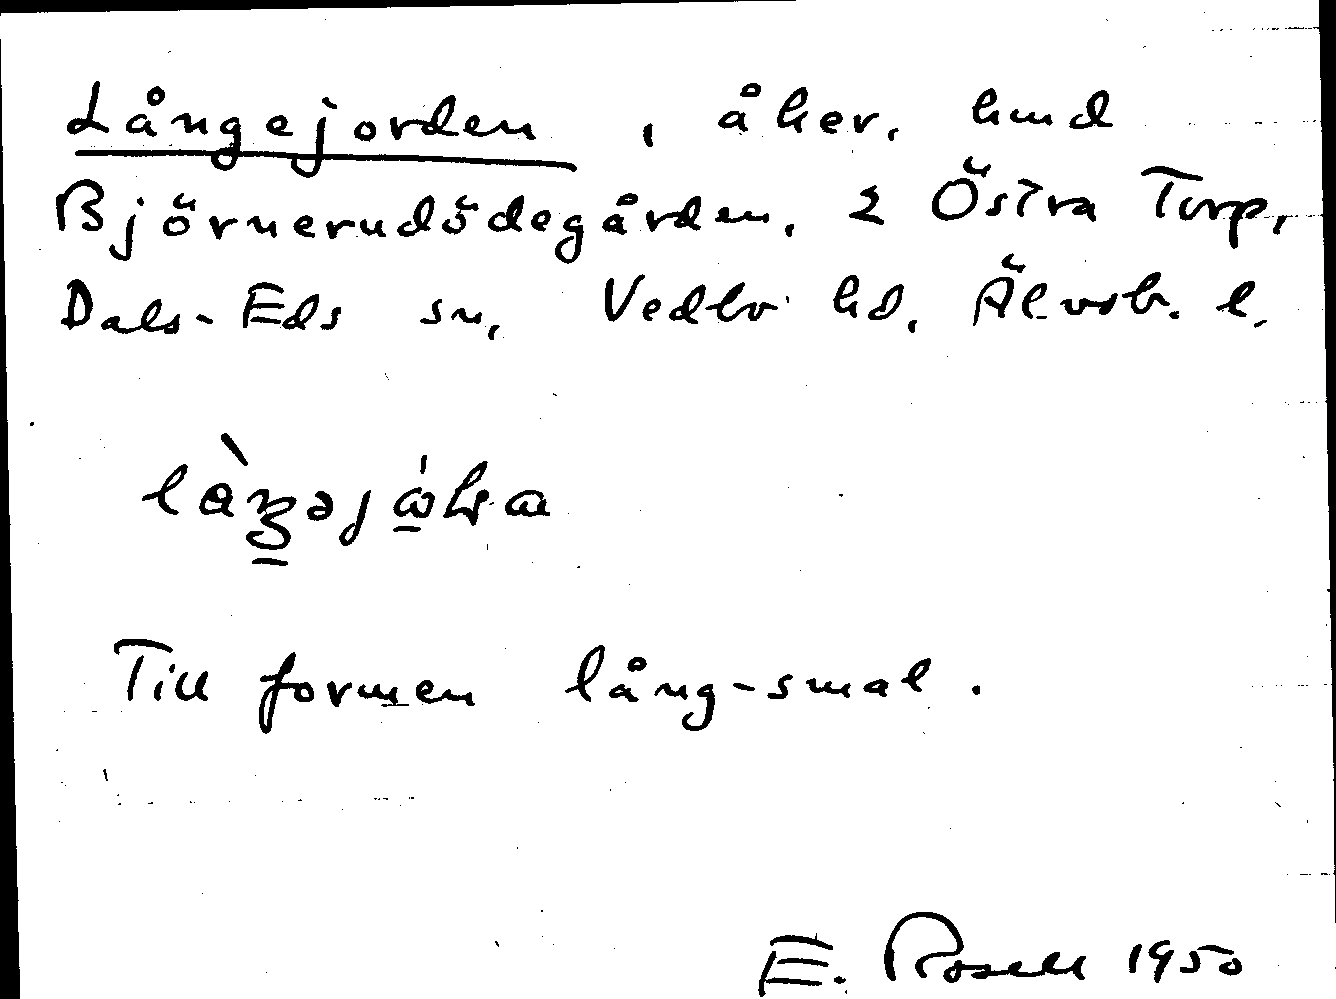 Långejorden, åker, hmd
Björnerudödegården, 2 Östra Torp,
Dals-Eds sn, Vedbo hd. Älvsb. l.
Till formen lång-smal.
E. Rosell 1950